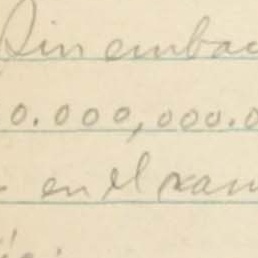 Sin embar
0.000,000.0
en el ram